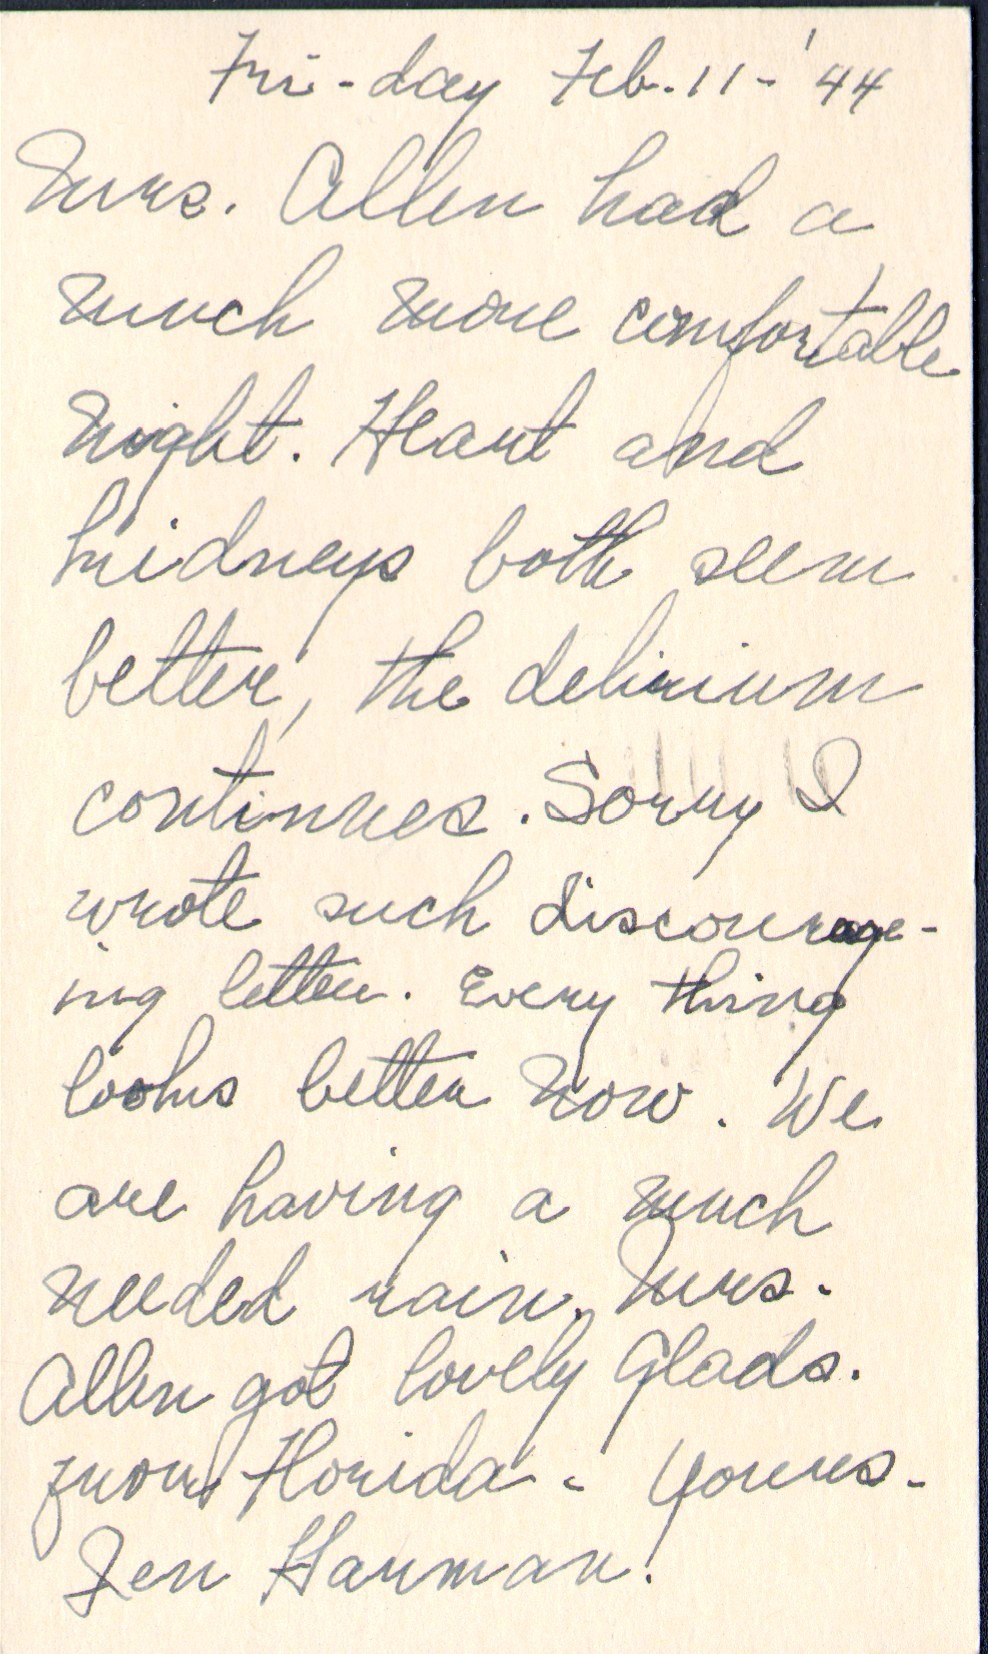 Fri-day Feb. 11 - '44
Mrs. Allen had a
much more comfortable
night. Heart and
kidneys both seem
better, the delirium
continues. Sorry I
wrote such discourage-
ing letter. Every thing
looks better now. We
are having a much
needed rain. Mrs.
Allen got lovely Glads.
from Florida - Yours -
Jen Harman.